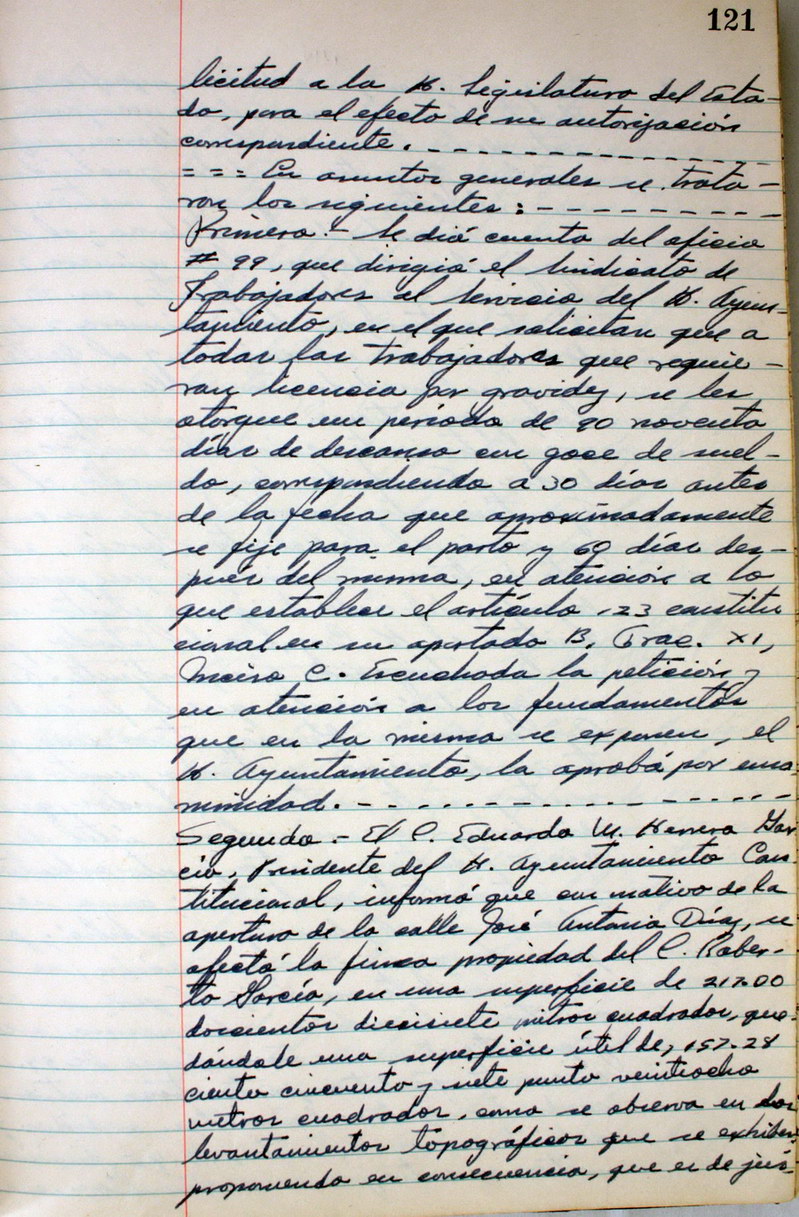 121
licitud a la H. Legislatura del Esta-
do, para el efecto de su autorización
correspondiente. - - - - - - - - - - - - - - -
= = = En asuntos generales se trata-
ron los siguientes : - - - - - - - - -
Primero.- Se dió cuenta del oficio
# 99, que dirigió el Sindicato de
Trabajadores al Servicio del H. Ayun-
tamiento, en el que solicitan que a
todas las trabajadoras que requie-
ran licencia por gravidez, se les
otorgue un período de 90 noventa
días de descanso con goce de suel-
do, correspondiendo a 30 días antes
de la fecha que aproximadamente
se fije para el parto y 60 días des-
pués del mismo, en atención a lo
que establece el artículo 123 constitu
cional en su apartado B, Frac. XI,
Inciso C. Escuchada la petición y
en atención a los fundamentos
que en la misma se exponen, el
H. Ayuntamiento, la aprobó por una
nimidad. - - - - - - - - - - - - - - -
Segundo.- El C. Eduardo M. Herrera Gar
cía, Presidente del H. Ayuntamiento Cons
titucional, informó que con motivo de la
apertura de la calle José Antonio Díaz, se
afectó la finca propiedad del C. Rober-
to García, en una superficie de 217.00
doscientos diecisiete metros cuadrados, que-
dándole una superficie útil de, 157.28
ciento cincuenta y siete punto veintiocho
metros cuadrados, como se observa en los
levantamientos topográficos que se exhiben,
proponiendo en consecuencia, que es de jus-